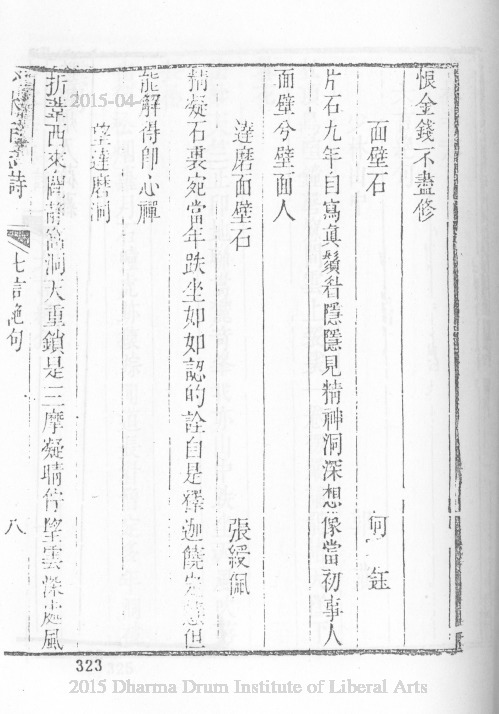 恨金錢不盡修
面壁石
何鈺
片石九年自寫眞鬚眉隱隱見精神洞深想像當初事人
面壁兮壁面人
達磨面壁石
張綬佩
精凝石裏宛當年趺坐如如認的詮自是釋迦饒定慧但
能解得卽心禪
望達磨洞
折葦西來閟靜窩洞天重鎖是三摩凝晴佇望雲深處風
詩
七言絶句
八
323
2015-04-
2015 Dharma Drum Institute of Liberal Arts